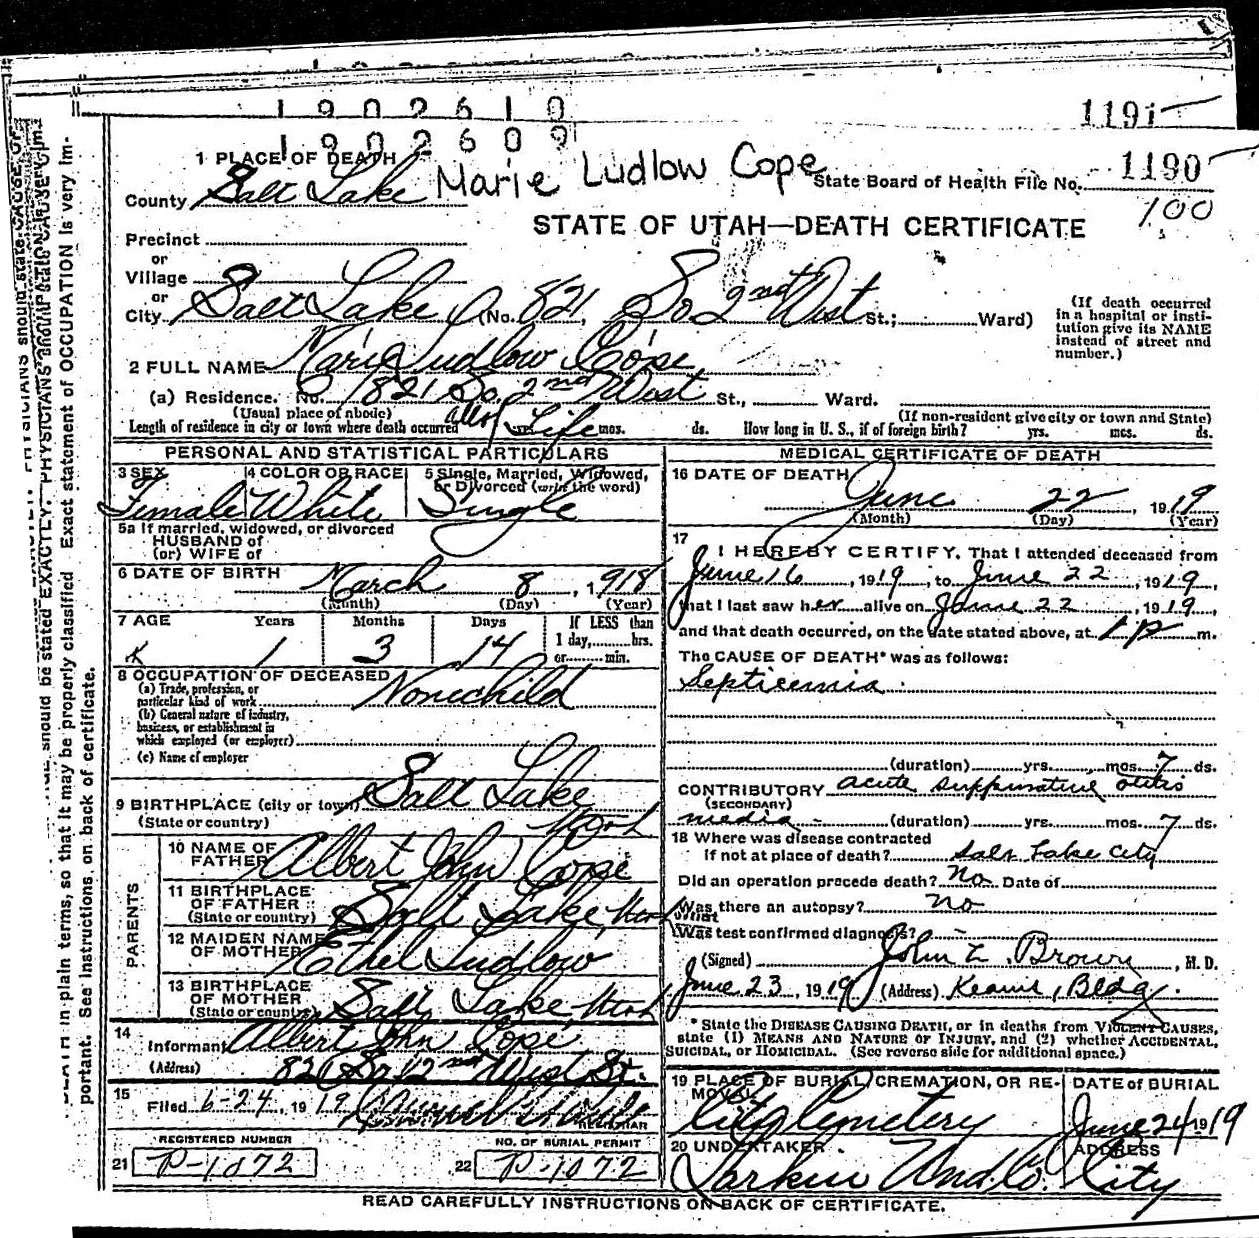 1902610
1191
1902609
1 PLACE OF DEATH
Marie Ludlow Cope
State Board of Health File No. 1190
County Salt Lake
100
STATE OF UTAH—DEATH CERTIFICATE
Precinct
or
Village
or
City Salt Lake (No. 821, So 2nd West St.; Ward)
(If death occurred in a hospital or institution give its NAME instead of street and number.)
2 FULL NAME Marie Ludlow Cope
(a) Residence. No. 821 So. 2nd West St., Ward.
(Usual place of abode)
(If non-resident give city or town and State)
Length of residence in city or town where death occurred all of Life mos. ds. How long in U. S., if of foreign birth? yrs. mos. ds.
PERSONAL AND STATISTICAL PARTICULARS
3 SEX Female
4 COLOR OR RACE White
5 Single, Married, Widowed, or Divorced (write the word) Single
5a If married, widowed, or divorced
HUSBAND of
(or) WIFE of
6 DATE OF BIRTH March 8, 1918
(Month) (Day) (Year)
7 AGE Years Months Days If LESS than
1 day, hrs.
1 3 14 or min.
8 OCCUPATION OF DECEASED
(a) Trade, profession, or particular kind of work None child
(b) General nature of industry, business, or establishment in which employed (or employer)
(c) Name of employer
9 BIRTHPLACE (city or town) Salt Lake
(State or country) Utah
PARENTS
10 NAME OF FATHER Albert John Cope
11 BIRTHPLACE OF FATHER (State or country) Salt Lake, Utah
12 MAIDEN NAME OF MOTHER Ethel Ludlow
13 BIRTHPLACE OF MOTHER (State or country) Salt Lake Utah
14 Informant Albert John Cope
(Address) 821 So 2nd West St.
15 Filed 6-24, 1919
REGISTRAR
REGISTERED NUMBER
21 P-1072
NO. OF BURIAL PERMIT
22 P-1072
MEDICAL CERTIFICATE OF DEATH
16 DATE OF DEATH June 22, 1919
(Month) (Day) (Year)
17 I HEREBY CERTIFY, That I attended deceased from
June 16, 1919, to June 22, 1919,
that I last saw her alive on June 22, 1919,
and that death occurred, on the date stated above, at 1 p m.
The CAUSE OF DEATH* was as follows:
Septicemia
(duration) yrs. mos. 7 ds.
CONTRIBUTORY acute suppurative otitis
(SECONDARY)
media (duration) yrs. mos. 7 ds.
18 Where was disease contracted
If not at place of death? Salt Lake City
Did an operation precede death? No Date of
Was there an autopsy? No
What
Was test confirmed diagnosis?
(Signed) John Z. Brown, M. D.
June 23, 1919 (Address) Kearns, Bldg.
* State the DISEASE CAUSING DEATH, or in deaths from VIOLENT CAUSES, state (1) MEANS AND NATURE OF INJURY, and (2) whether ACCIDENTAL, SUICIDAL, or HOMICIDAL. (See reverse side for additional space.)
19 PLACE OF BURIAL, CREMATION, OR REMOVAL City Cemetery
DATE of BURIAL June 24 1919
20 UNDERTAKER Larkin Und. Co.
ADDRESS City
READ CAREFULLY INSTRUCTIONS ON BACK OF CERTIFICATE.
should be stated EXACTLY. PHYSICIANS should state CAUSE OF
DEATH in plain terms, so that it may be properly classified. Exact statement of OCCUPATION is very important. See instructions on back of certificate.